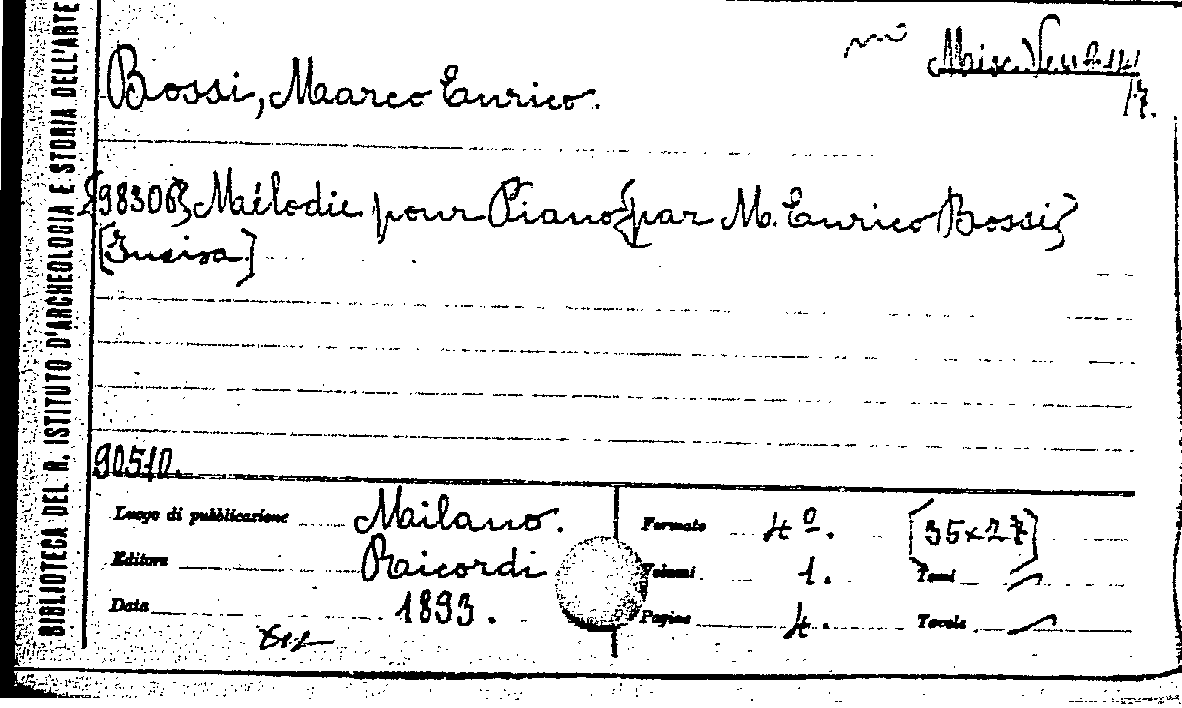 BIBLIOTECA DEL R. ISTITUTO D'ARCHEOLOGIA E STORIA DELL'ARTE
Misc. Vent. 
17.
Bossi, Marco Enrico.
{98306} Mélodie pour Piano {par M. Enrico Bossi}
[Incisa.]
90510.
Luogo di pubblicazione Milano. Formato 4º. [35x27]
Editore Ricordi Volumi 1. Tomi —
Data 1893. Pagine 4. Tavole —